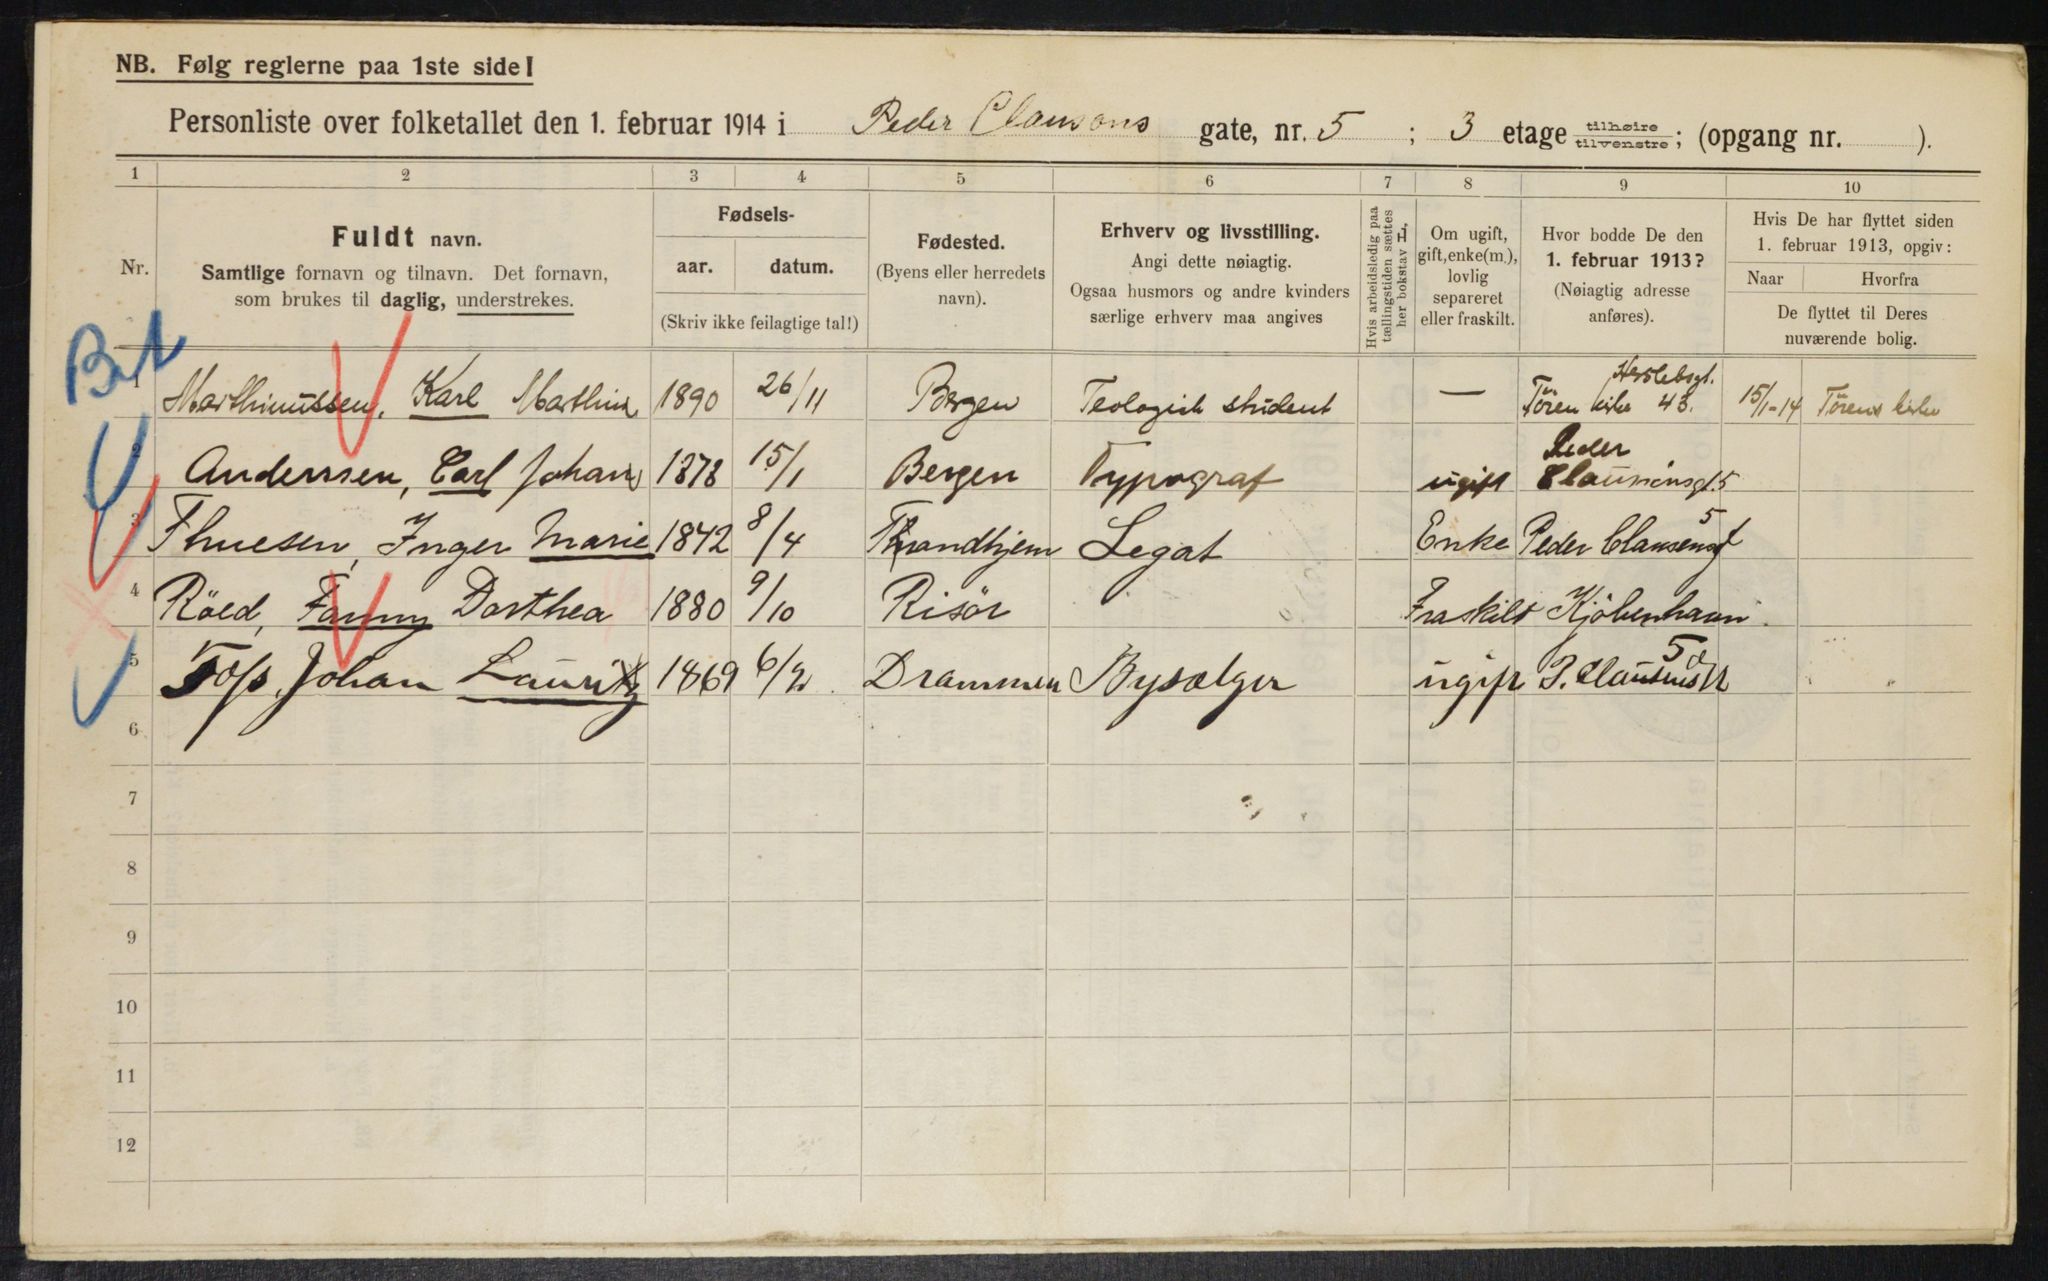 NB. Følg reglerne paa 1ste side!
Personliste over folketallet den 1. februar 1914 i Peder Clausøns gate, nr. 5 ; 3 etage tilhøire tilvenstre ; (opgang nr. ).
1 2 3 4 5 6 7 8 9 10
Nr.
Fuldt navn.
Samtlige fornavn og tilnavn. Det fornavn,
som brukes til daglig, understrekes.
Fødsels-
aar. datum.
(Skriv ikke feilagtige tal!)
Fødested.
(Byens eller herredets
navn).
Erhverv og livsstilling.
Angi dette nøiagtig.
Ogsaa husmors og andre kvinders
særlige erhverv maa angives
Hvis arbeidsledig paa
tællingstiden sættes
her bokstav L.
Om ugift,
gift, enke(m.),
lovlig
separeret
eller fraskilt.
Hvor bodde De den
1. februar 1913?
(Nøiagtig adresse
anføres).
Hvis De har flyttet siden
1. februar 1913, opgiv:
Naar Hvorfra
De flyttet til Deres
nuværende bolig.
1 Marthinussen, Karl Marthin 1890 26/11 Bergen Teologisk student — Herslebsgt. 43. 15/1-14
2 Anderssen, Carl Johan 1878 15/1 Bergen Typograf ugift Peder Claussønsgt. 5
3 Thuesen, Inger Marie 1842 8/4 Thrandhjem Legat Enke Peder Clausensgt 5
4 Röed, Fanny Dorthea 1880 9/10 Risör Fraskilt Kjöbenhavn
5 Foss, Johan Lauritz 1869 6/2 Drammen Bysælger ugift P. Clausensgt 5
6
7
8
9
10
11
12